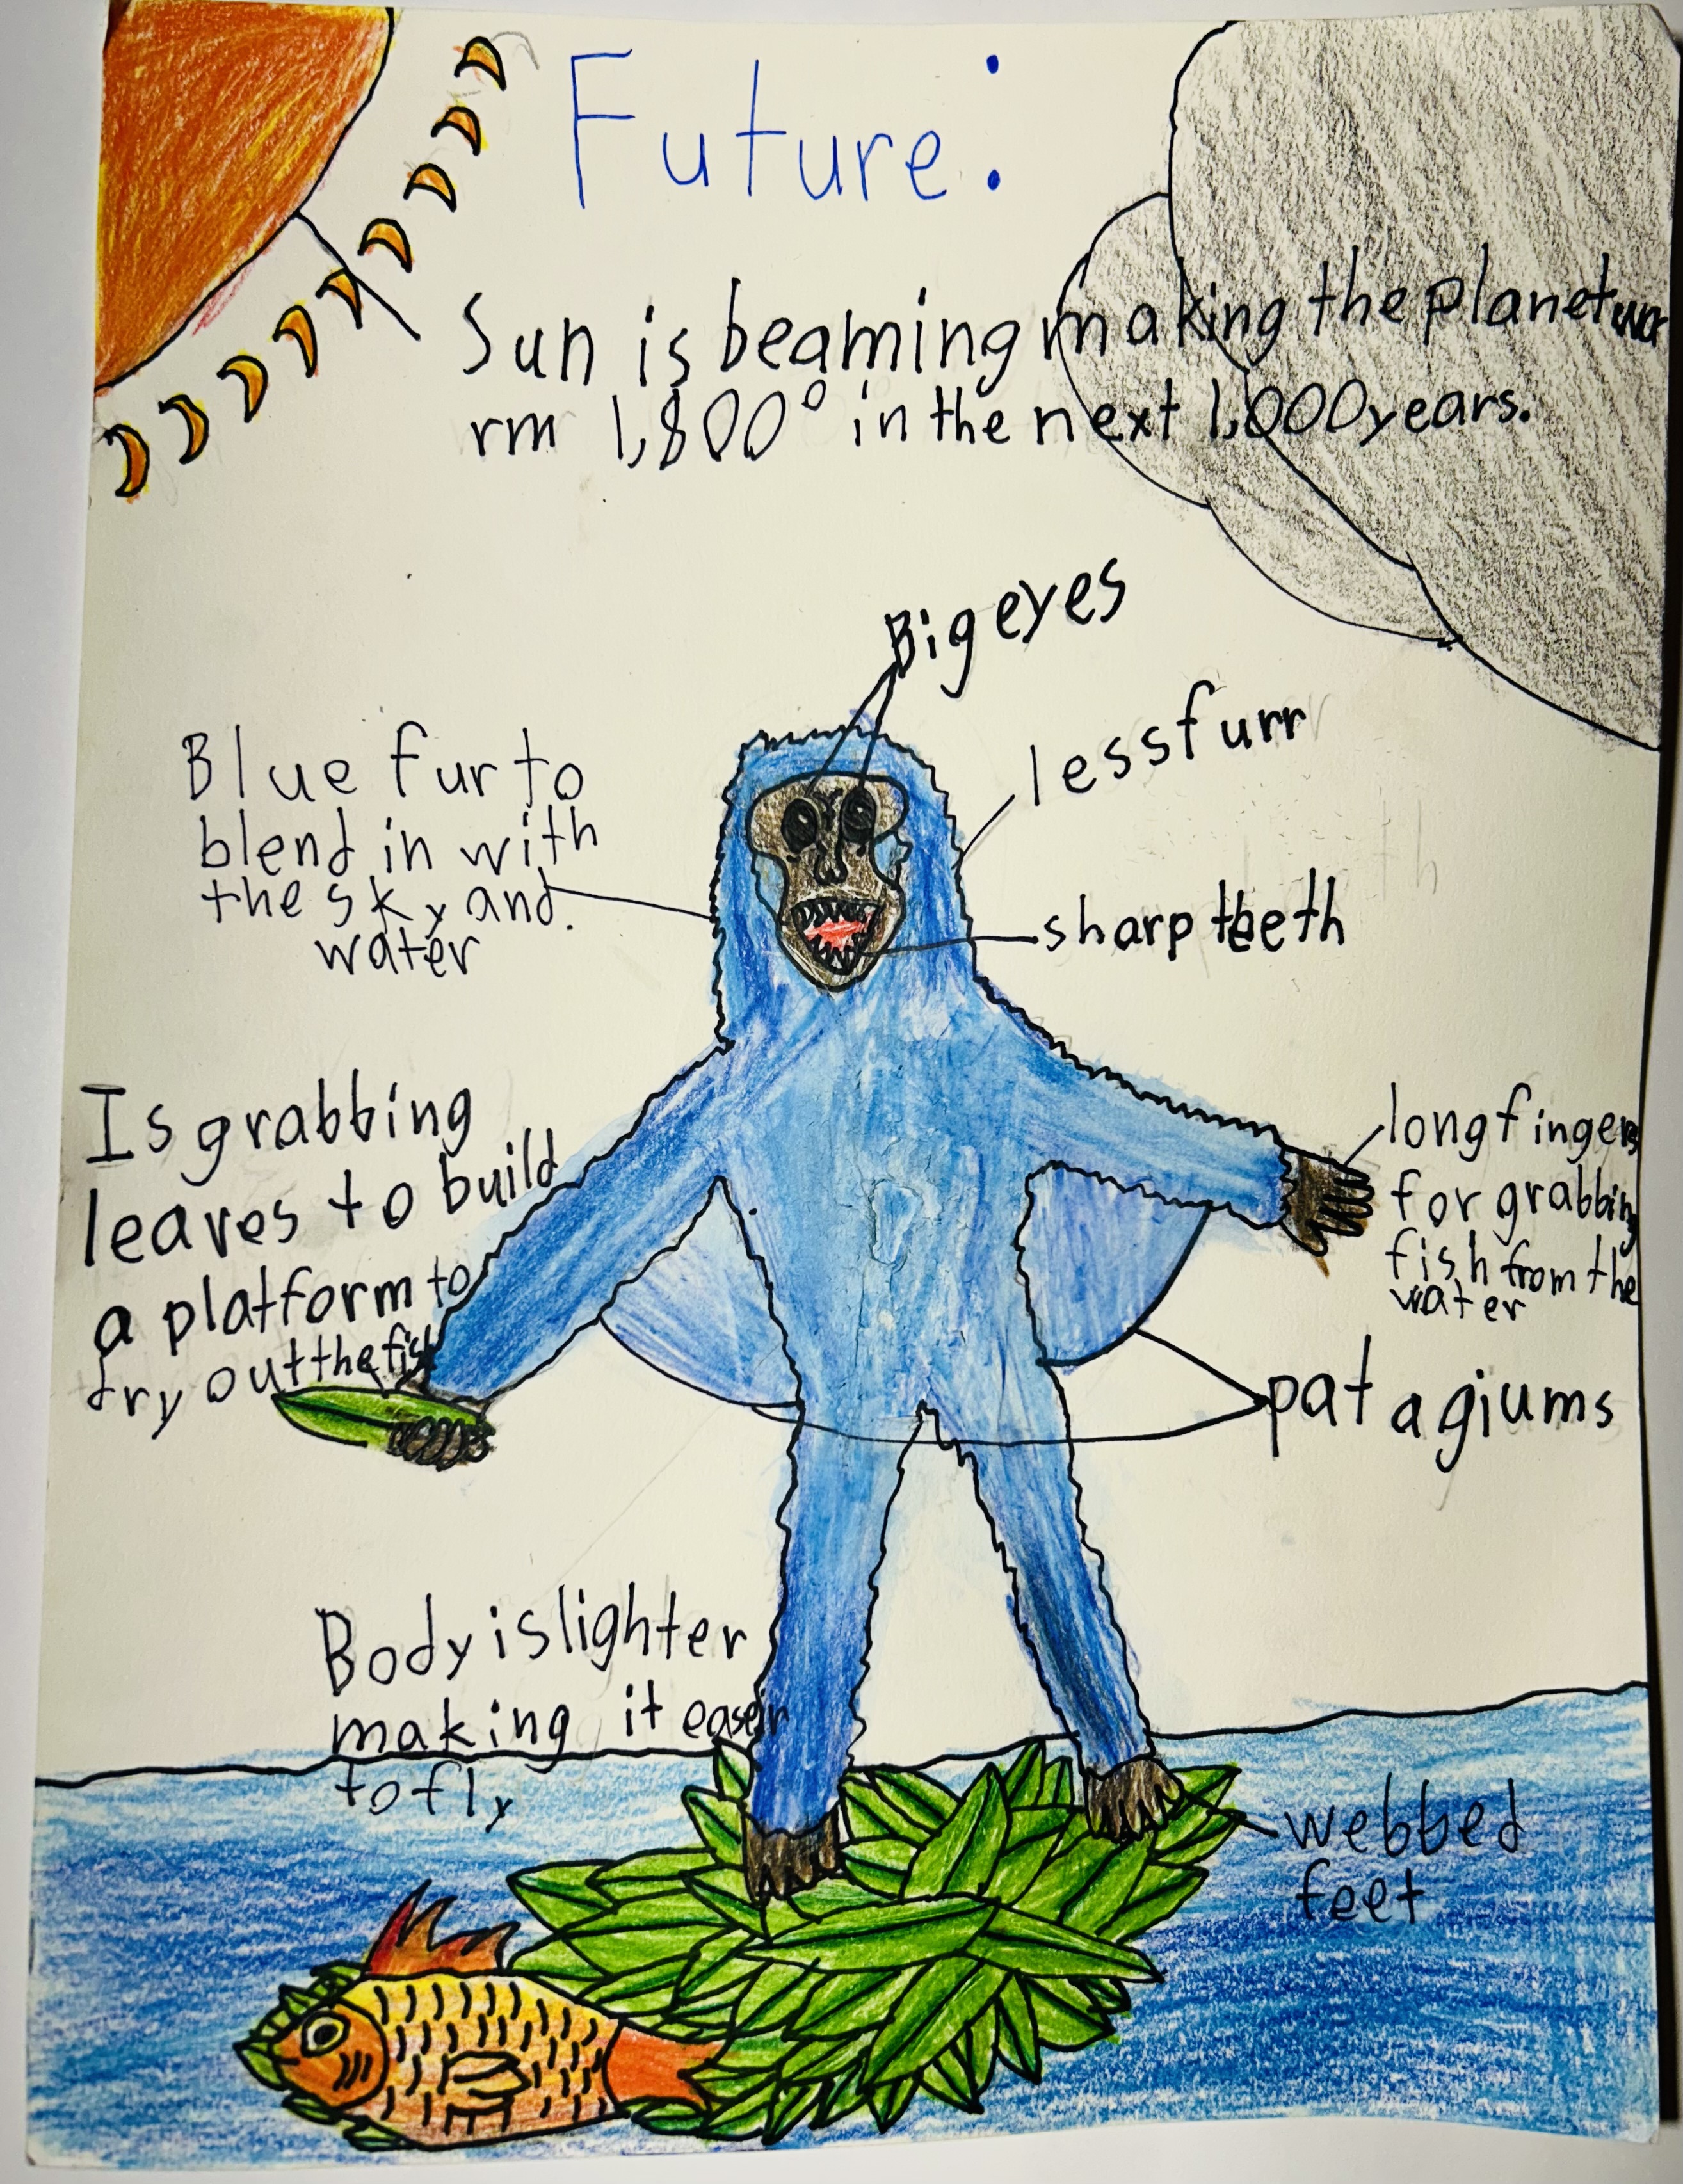 Future:
Sun is beaming making the planet wa
rm 1,800° in the next 1,000 years.
Big eyes
less furr
Blue fur to
blend in with
the sky and.
water
sharp teeth
Is grabbing
leaves to build
a platform to
dry out the fish
long fingers
for grabbing
fish from the
water
patagiums
Body is lighter
making it easeir
to fly
webbed
feet